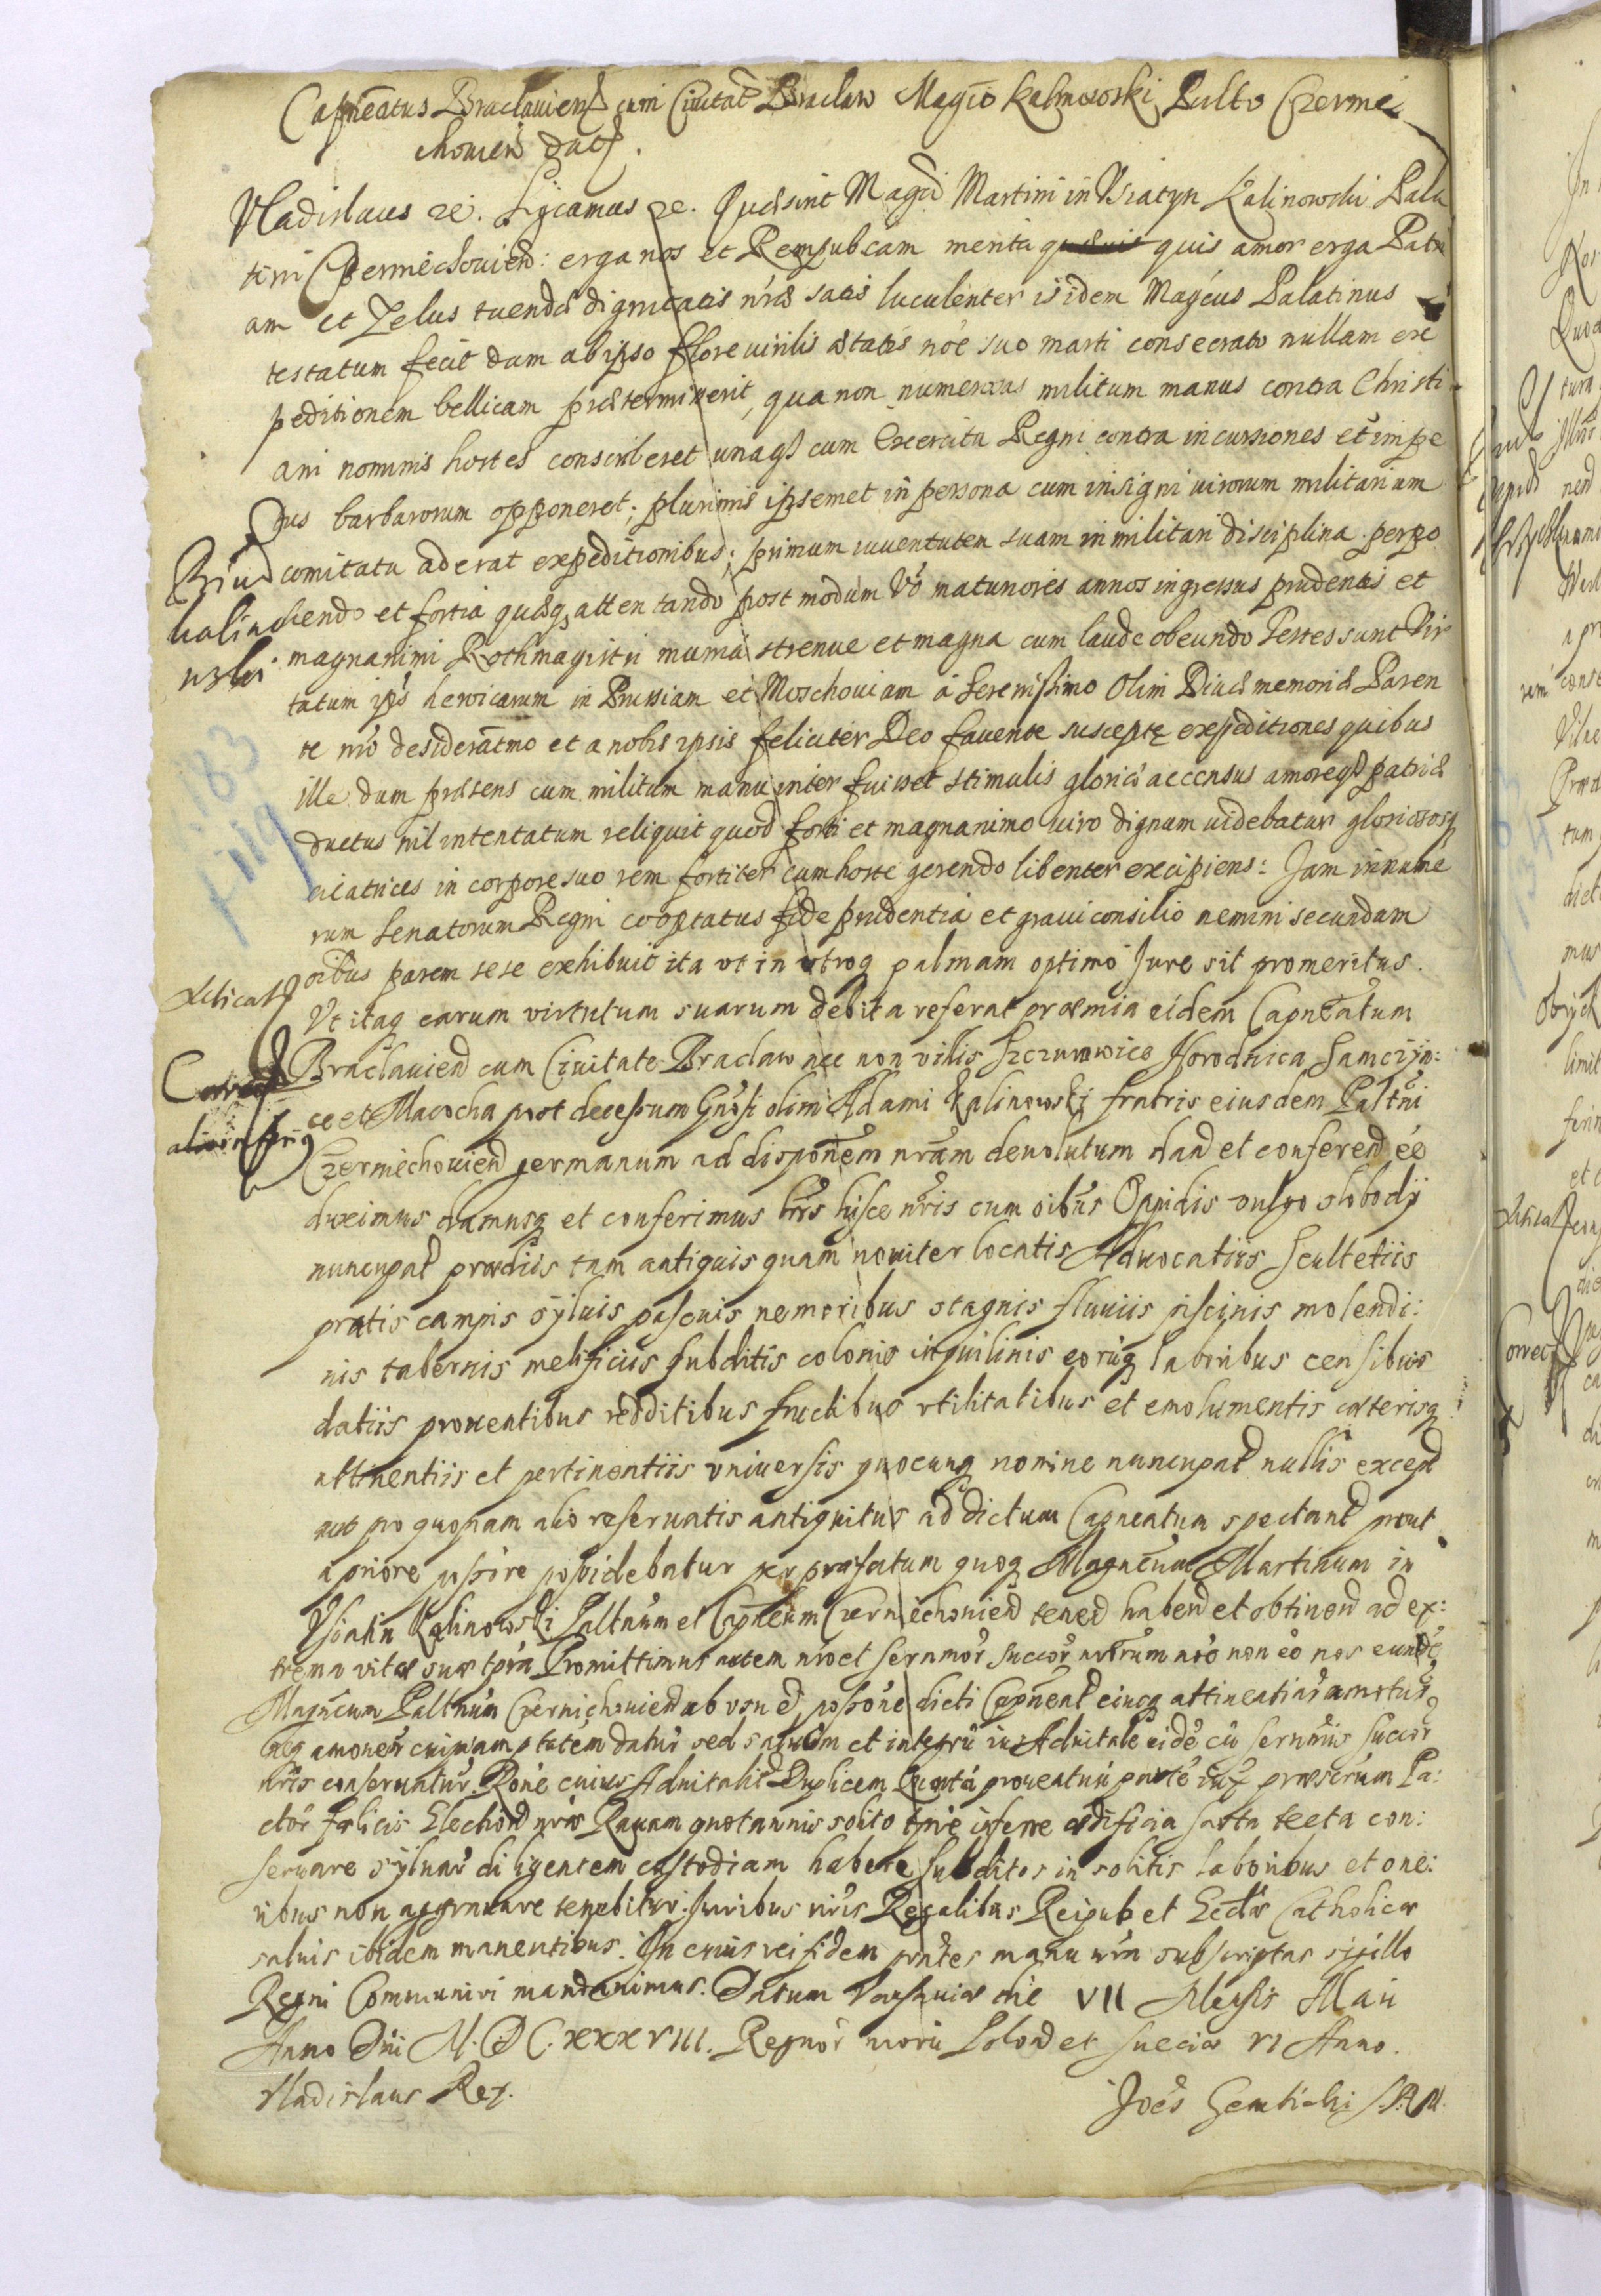 Capneatus Braclaviens cum Civitate Braclaw Magco Kalinowski Palto Czernie
choviens datus.
Vladislaus etc. Significamus etc. Quae sint Magci Martini in Vsiatyn Kalinowski Pala
tini Czerniechoviens: erga nos et Rempubcam merita quis amor erga Patri
am et Zelus tuendae dignitatis nrae satis luculenter is idem Magcus Palatinus
testatum fecit dum ab ipso flore virilis aetatis noe suo marti consecrato nullam ex
peditionem bellicam praetermiserit, qua non numerosas militum manus contra Christi
ani nominis hostes conscriberet unaq cum Exercitu Regni contra incursiones et impe
tus barbarorum opponeret; plurimis ipsemet in persona cum insigni virorum militarium
comitatu aderat expeditionibus; primum iuventutem suam in militari disciplina perpo
liendo et fortia quaeq attentando post modum Vo maturiores annos ingressus prudentis et
magnanimi Rothmagistri munia strenue et magna cum laude obeundo Testes sunt Vir
tutum ips heroicarum in Prussiam et Moschoviam a Serenissimo Olim Divae memoriae Paren
te nro desideratmo et a nobis ipsis feliciter Deo favente susceptę expeditiones quibus
ille dum praesens cum militum manu interfuisset stimulis gloriae accensus amoreq patriae
ductus nil intentatum reliquit quod forti et magnanimo viro dignum videbatur gloriosasq
cicatrices in corpore suo rem fortiter cum hoste gerendo libenter excipiens: Jam in nume
rum Senatorum Regni cooptatus fide prudentia et gravi consilio nemini secundum
oibus parem sese exhibuit ita vt in vtroq palmam optimo Jure sit promeritus.
Vt itaq earum virtutum suarum debita referat praemia eidem Capneatum
Braclaviens cum Civitate Braclaw nec non villis Szczurowice Horodnica Samczyn:
ce et Macocha post decessum Gnosi olim Adami Kalinowski fratris eiusdem Paltni
Czerniechoviens germanum ad disponem nram devolutum dand et conferend ee
duximus damusq et conferimus lris hisce nris cum oibus Oppidis vulgo slobody
nuncupat praediis tam antiquis quam noviter locatis Advocatiis Scultetiis
pratis campis sylvis pascuis nemoribus stagnis fluviis piscinis molendi:
nis tabernis melificiis subditis colonis inquilinis eoruq laboribus censibus
datiis proventibus redditibus fructibus vtilitatibus et emolumentis caeterisq
attinentiis et pertinentiis vniversis quocunq nomine nuncupat nullis except
aut pro quopiam alio reservatis antiquitus ad dictum Capneatum spectant prout
a priore possore possidebatur per praefatum quoq Magncum Martinum in
Vsiatin Kalinowski Paltnum et Capneum Czerniechoviens tenend habend et obtinend ad ex:
trema vitae suae tpra Promittimus autem nro et Sernmor Succor nrorum noe non eo nos eunde
Magncum Paltnum Czernichoviens ab vsu et possone dicti Capneat eiusq attinentiar amoturos
neq amovendi cuipiam ptatem daturos sed salvum et integru ius Advitale eide cu Sernmis Succor
nris conservaturos. Rone cuius Advitalis Duplicem Quarta proventuu parte iux praescrum Pa:
ctor felicis Electionis nrae Ravam quotannis solito tpre inferre aedificia sarta tecta con:
servare sylvar diligentem custodiam habere subditos insolitis laboribus et one:
ribus non aggravare tenebitur. Juribus nris Regalibus Reipub et Ecclae Catholicae
salvis ibidem manentibus. In cuius rei fidem pntes manu nra subscriptas sigillo
Regni Communiri mandavimus. Datum Varsaviae die VII Mensis Maii
Anno Dni M.DC.XXXVIII. Regnor nroru Polon et Sueciae VI Anno.
Vladislaus Rex.
Joes Gembicki S.R.M.
Kalino
wski
delicat
Correct
183